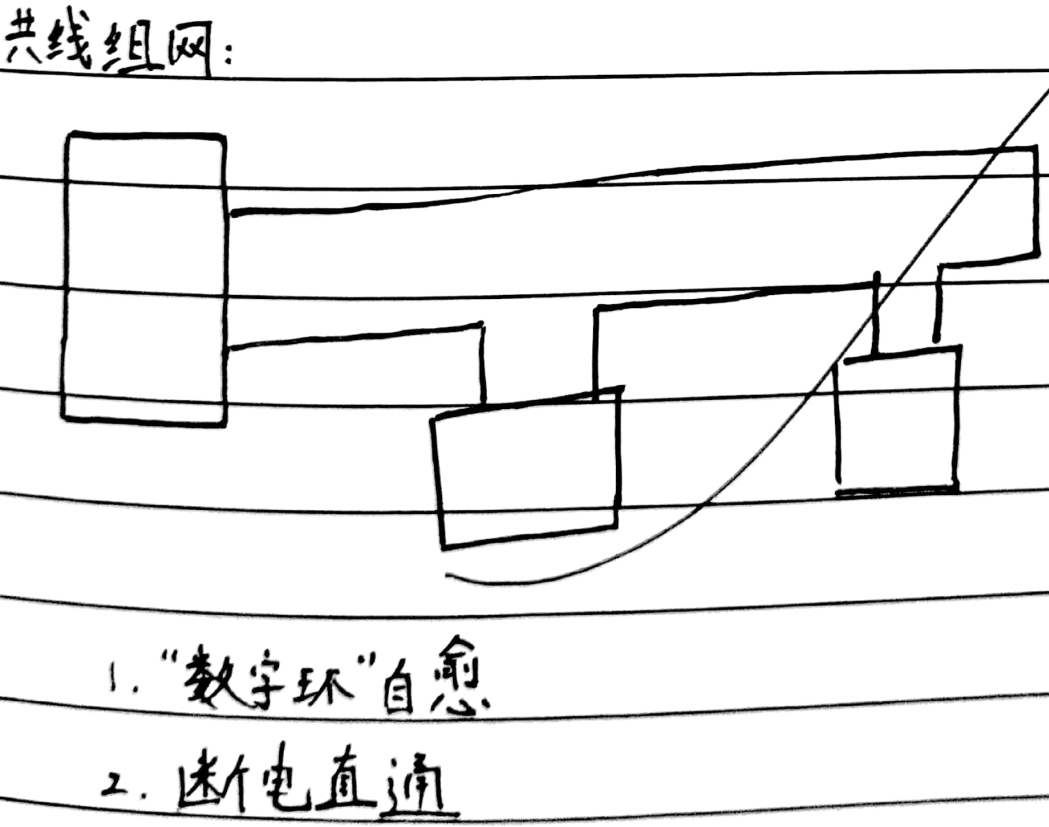 共线组网:
1. “数字环”自愈
2. 断电直通